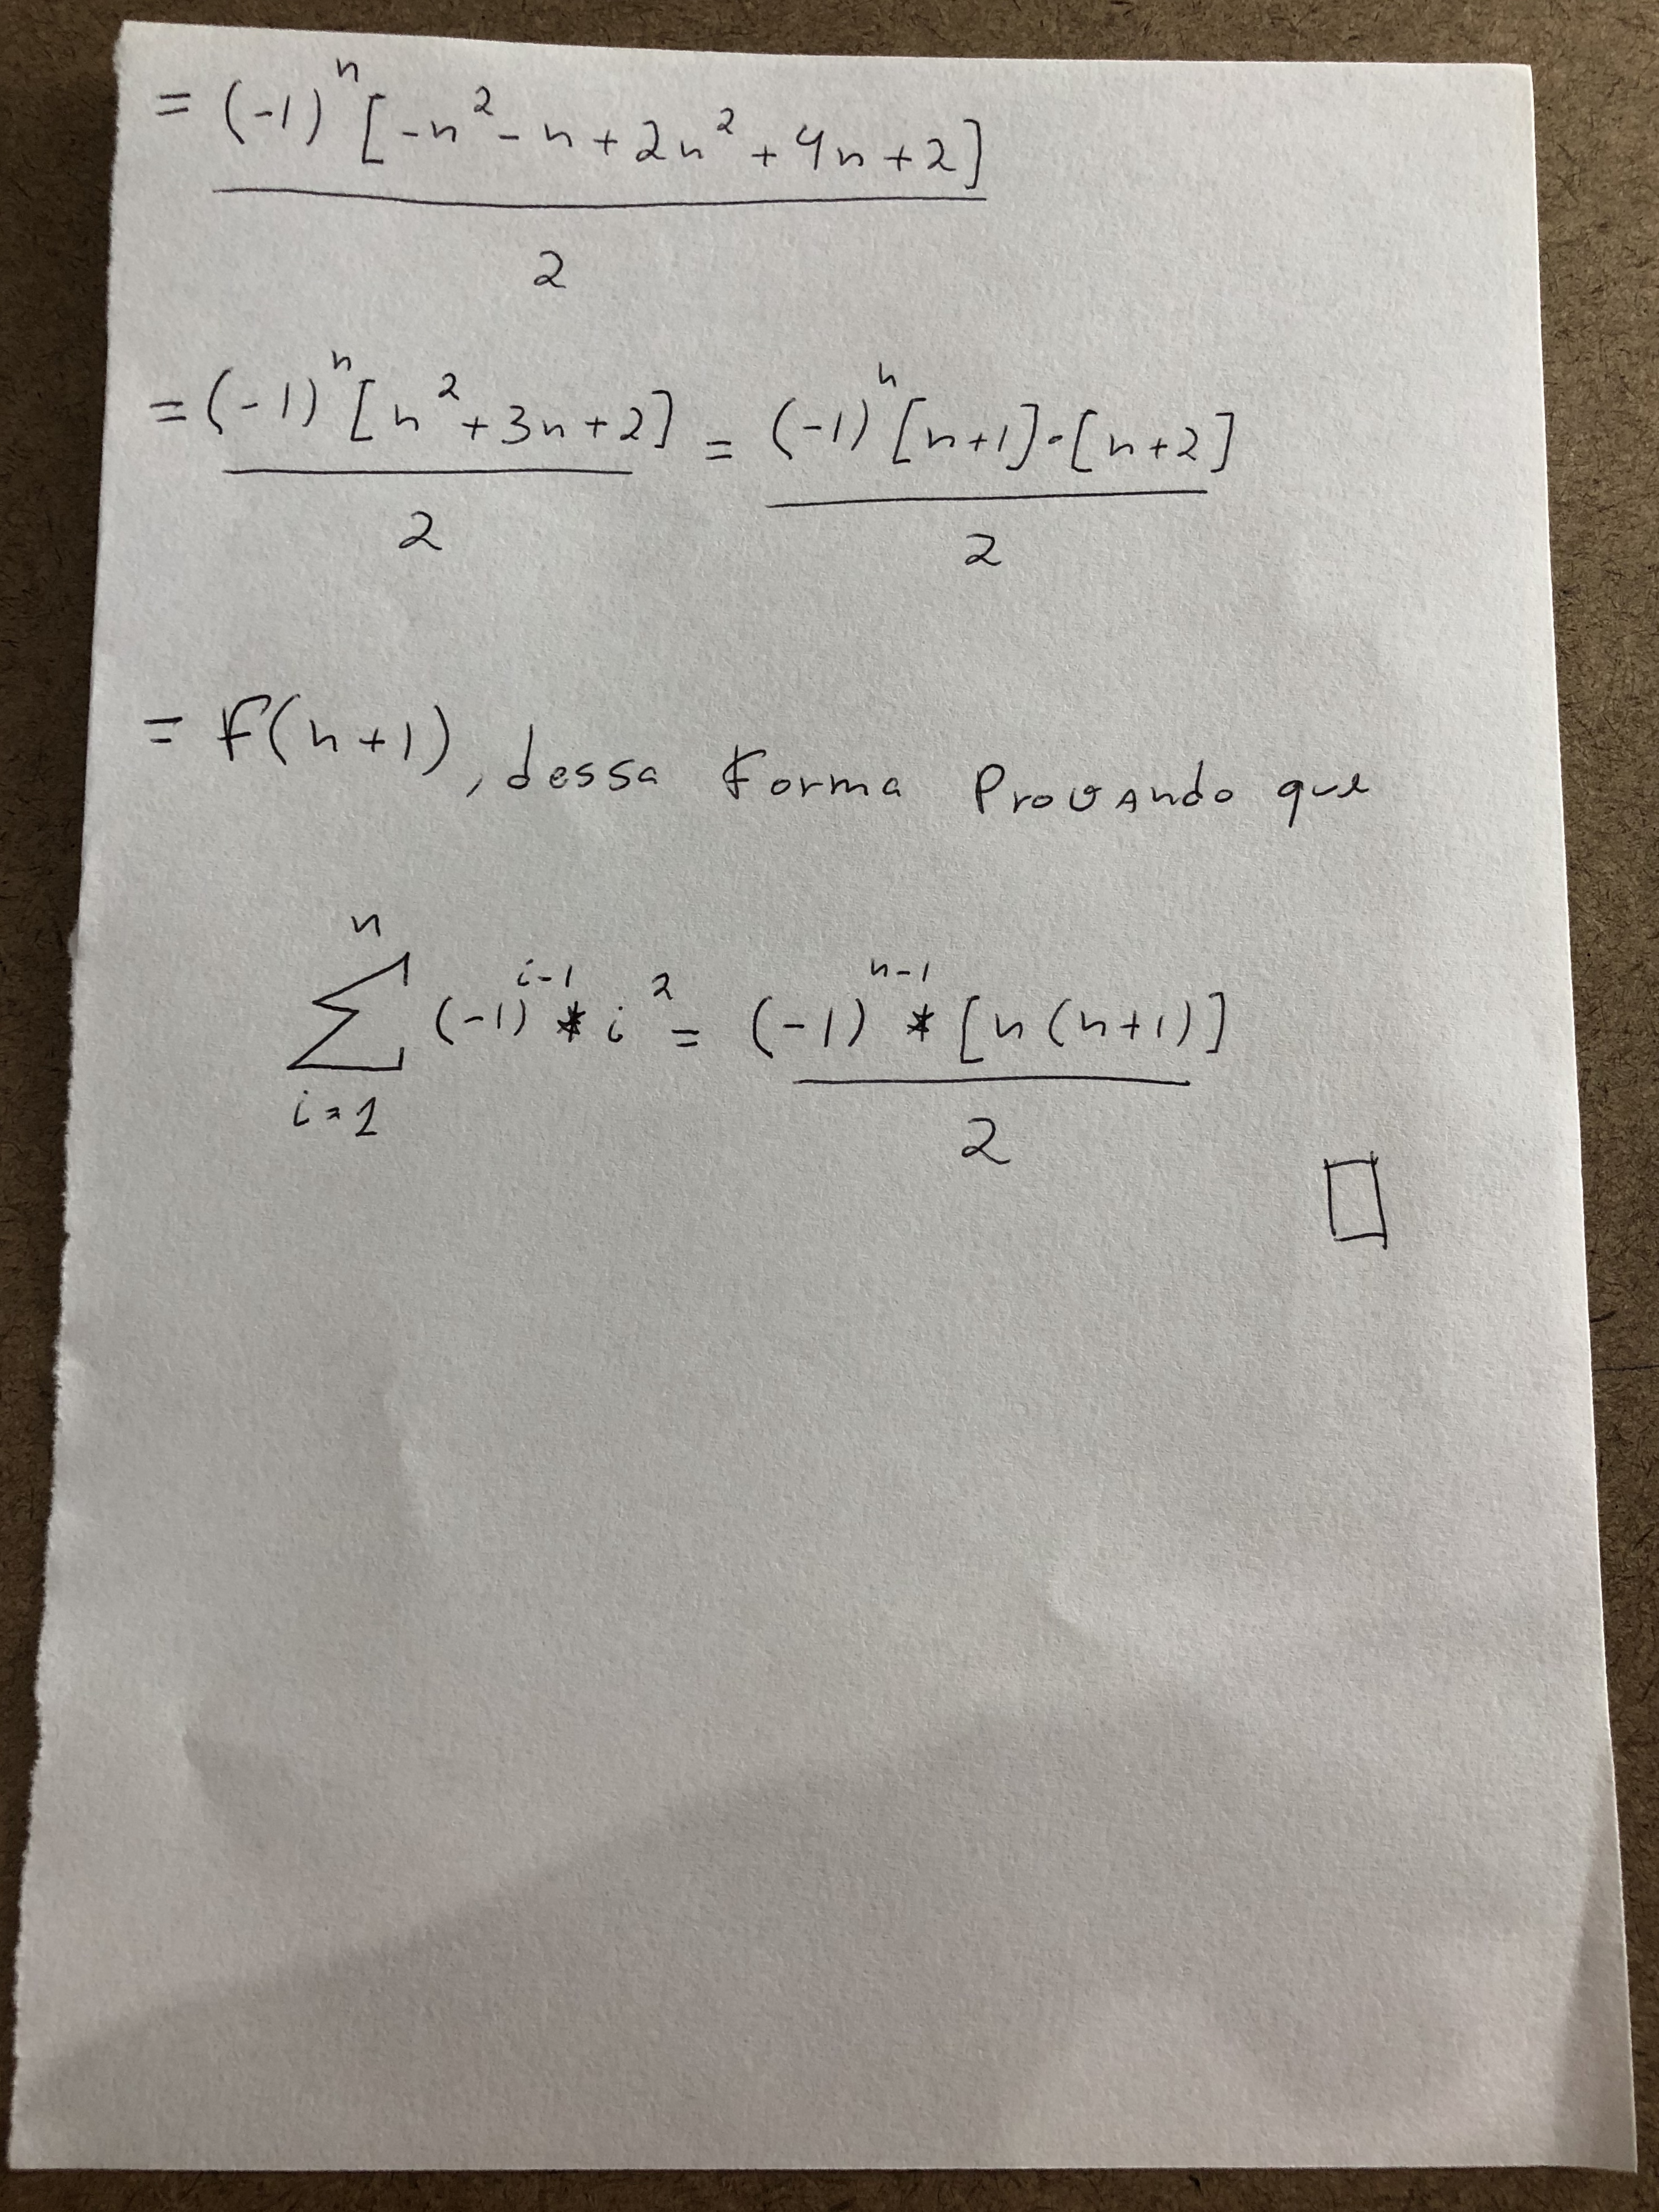 = (-1)^n [-n^2 - n + 2n^2 + 4n + 2] / 2
= (-1)^n [n^2 + 3n + 2] / 2 = (-1)^n [n+1]·[n+2] / 2
= F(n+1), dessa Forma Provando que
∑_{i=1}^{n} (-1)^{i-1} * i^2 = (-1)^{n-1} * [n(n+1)] / 2
□